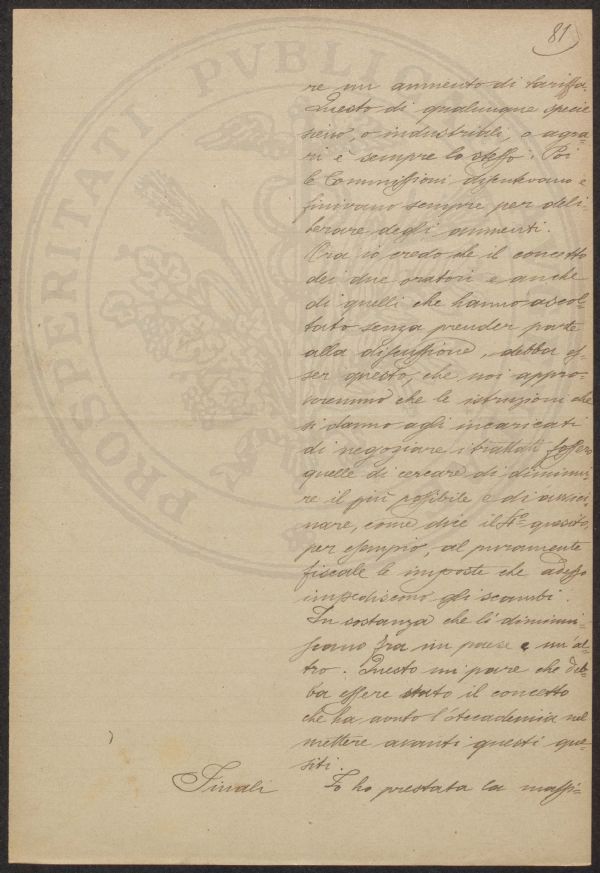 81
re un aumento di tariffa.
Questo di qualunque specie
sieno, o industriali, o agra-
ri è sempre lo stesso. Poi
le Commissioni disputavano e
finivano sempre per deli-
berare degli aumenti.
Ora io credo che il concetto
dei due oratori e anche
di quelli che hanno ascol-
tato senza prender parte
alla discussione, debba es-
ser questo, che noi appro-
veremmo che le istruzioni che
si danno agli incaricati
di negoziare i trattati fossero
quelle di cercare di diminui-
re il più possibile e di avvici-
nare, come dice il 4º quesito,
per esempio, al puramente
fiscale le imposte che adesso
impediscono gli scambi.
In sostanza che li diminui-
scano fra un paese e un'al-
tro. Questo mi pare che deb-
ba essere stato il concetto
che ha avuto l'Accademia nel
mettere avanti questi que-
siti.
Finali Io ho prestata la massi-
PROSPERITATI PVBLIC